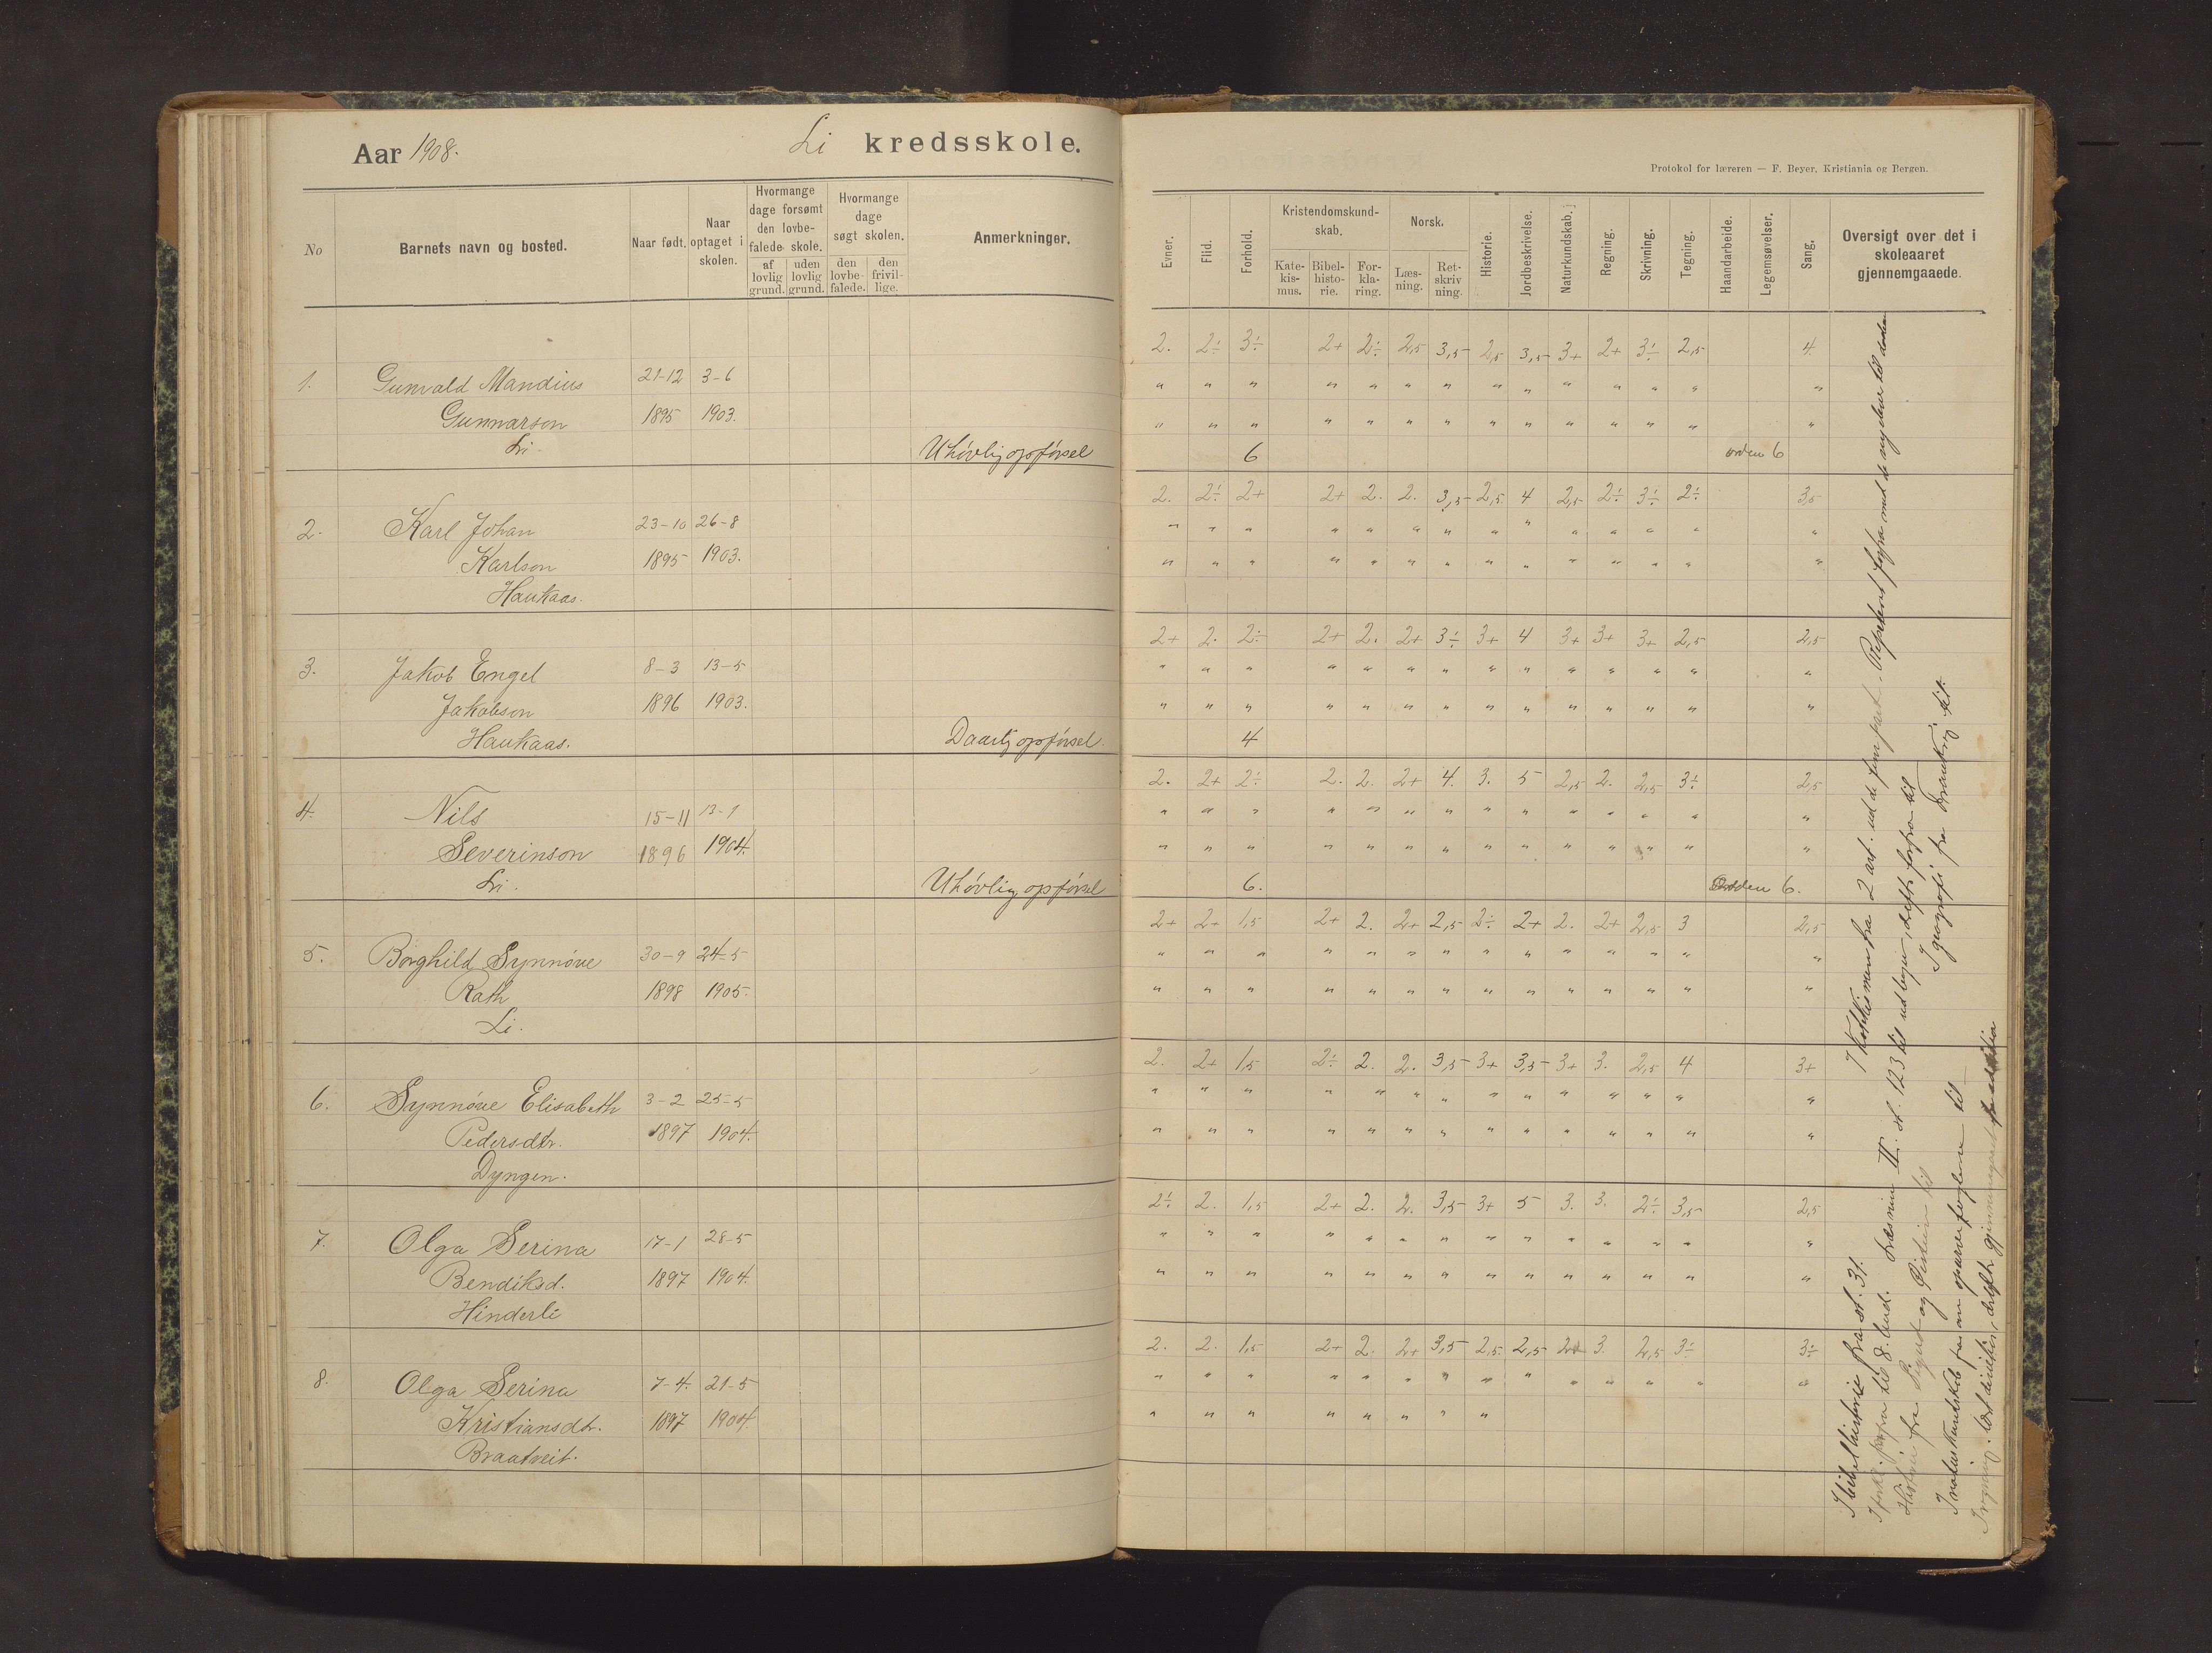 Aar 1908.
Li kredsskole.
No
Barnets navn og bosted.
Naar født.
Naar optaget i skolen.
Hvormange dage forsømt den lovbefalede skole.
af lovlig grund.
uden lovlig grund.
Hvormange dage søgt skolen.
den lovbefalede.
den frivillige.
Anmerkninger.
1. Gunvald Mandius 21-12 3-6
Gunnarson 1895 1903.
Li. Uhövlig opförsel
2. Karl Johan 23-10 26-8
Karlson 1895 1903.
Haukaas.
3. Jakob Engel 8-3 13-5
Jakobson 1896 1903.
Haukaas. Daarlig opförsel.
4. Nils 15-11 13-9
Severinson 1896 1904.
Li. Uhövlig opförsel
5. Borghild Synnöve 30-9 24-5
Rath 1898 1905.
Li.
6. Synnöve Elisabeth 3-2 25-5
Pedersdtr. 1897 1904.
Dyngen.
7. Olga Serina 17-1 28-5
Bendiksd. 1897 1904.
Hinderli
8. Olga Serina 7-4. 21-5
Kristiansdtr. 1897 1904.
Braatveit.
Protokol for læreren — F. Beyer, Kristiania og Bergen.
Evner.
Flid.
Forhold.
Kristendomskundskab.
Katekismus.
Bibelhistorie.
Forklaring.
Norsk.
Læsning.
Retskrivning.
Historie.
Jordbeskrivelse.
Naturkundskab.
Regning.
Skrivning.
Tegning.
Haandarbeide.
Legemsøvelser.
Sang.
Oversigt over det i skoleaaret gjennemgaaede.
2. 2÷ 3÷ 2+ 2÷ 2,5 3,5 2,5 3,5 3+ 2+ 3÷ 2,5 4.
" " " " " " " " " " " " " "
" " " " " " " " " " " " " "
6 orden 6
2. 2÷ 2+ 2+ 2. 2. 3,5 2,5 4 2,5 2÷ 3÷ 2÷ 3,5
" " " " " " " " " " " " " "
" " " " " " " " " " " " " "
2+ 2. 2÷ 2+ 2. 2+ 3÷ 3+ 4 3+ 3+ 3+ 2,5 2,5
" " " " " " " " " " " " " "
" " " " " " " " " " " " " "
4
2. 2+ 2÷ 2. 2. 2+ 4. 3. 5 2,5 2. 2,5 3÷ 2,5
" " " " " " " " " " " " " "
" " " " " " " " " " " " " "
6. Orden 6.
2+ 2+ 1,5 2+ 2. 2+ 2,5 2÷ 2+ 2. 2+ 2,5 3 2,5
" " " " " " " " " " " " " "
" " " " " " " " " " " " " "
2. 2+ 1,5 2÷ 2. 2. 3,5 3+ 3,5 3+ 3. 2,5 4 3+
" " " " " " " " " " " " " "
" " " " " " " " " " " " " "
2÷ 2. 1,5 2+ 2. 2. 3,5 3+ 5 3. 3. 2÷ 3,5 2,5
" " " " " " " " " " " " " "
" " " " " " " " " " " " " "
2. 2. 1,5 2+ 2. 2+ 3,5 2,5 2,5 2+ 3. 2,5 3÷ 3÷
" " " " " " " " " " " " " "
" " " " " " " "
I bibelhistorie fra st. 31. I Katekismen fra 2 art. ud de fem part. Repetert forfra med de nylære til
I forkl. forfra til 8. bud. Læsning II. st. 123 til udbegn, forfra til
Historie fra Sigurd og Öistein til I geografi fra Frankrig til.
I naturkundskab fra til
I regning.